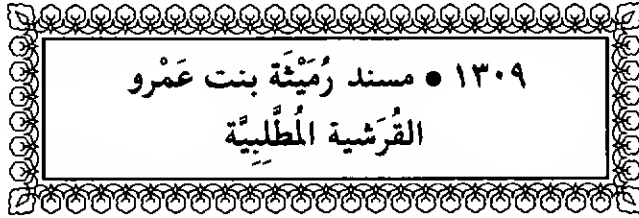 ١٣٠٩ ● مسند رُمَيْثَة بنت عَمْرو
القُرَشية المُطَّلِبِيَّة